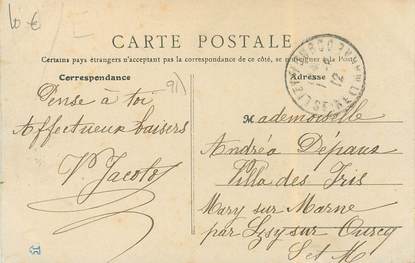 10 €
CARTE POSTALE
Certains pays étrangers n'acceptant pas la correspondance de ce côté, se renseigner à la Poste
Correspondance
Adresse
91
Pense à toi
Affectueux baisers
Vr Jacolot
Mademoiselle
Andréa Dépaux
Villa des Iris
Mary sur Marne
par Lizy sur Ourcq
S et M
12